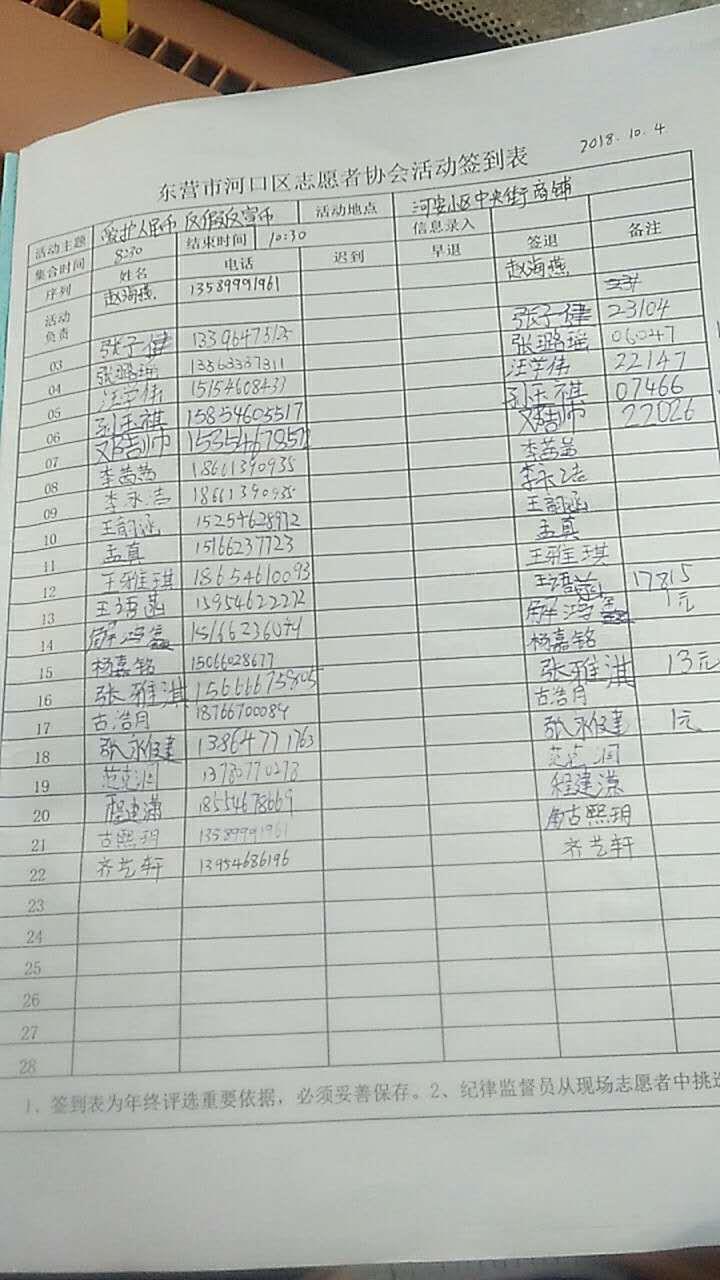 2018.10.4
东营市河口区志愿者协会活动签到表
活动主题 爱护人民币 反假反宣币 活动地点 河安小区中央街商铺
集合时间 8:30 结束时间 10:30 信息录入
序列 姓名 电话 迟到 早退 签退 备注
活动负责 赵海燕 13589991961 赵海燕
03 张子健 张子健 23104
04 张璐瑶 13563337311 张璐瑶 06047
05 汪学伟 15154608433 汪学伟 22147
06 孙玉祺 15854605517 孙玉祺 07466
07 22026
08 李茜茜 18661390935 李茜茜
09 李永洁 18661390935 李永洁
10 王韵涵 15254628972 王韵涵
11 孟真 15166237723 孟真
12 王雅琪 18654610093 王雅琪
13 王语菡 15954622272 王语菡 17815
14 解鸿 解鸿 1元
15 杨嘉铭 15066028677 杨嘉铭
16 张雅淇 张雅淇 13元
17 古浩月 18766700084 古浩月
18 张永健 13864771763 张永健 1元
19 范克润 范克润
20 程建潇 18554678669 程建潇
21 古熙玥 13589991961 古熙玥
22 齐艺轩 13954686196 齐艺轩
23
24
25
26
27
28
1、签到表为年终评选重要依据，必须妥善保存。2、纪律监督员从现场志愿者中挑选